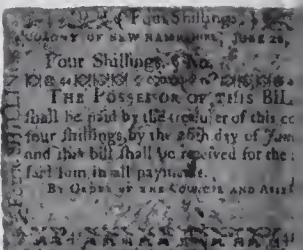 Four Shillings.
COLONY OF NEW HAMPSHIRE, JUNE 28,
Four Shillings. No.
THE POSSESSOR OF THIS BIL
ſhall be paid by the treaſurer of this co
four ſhillings, by the 26th day of June
and this bill ſhall be received for the
ſaid ſum, in all payments.
BY ORDER OF THE COUNCIL AND ASSE